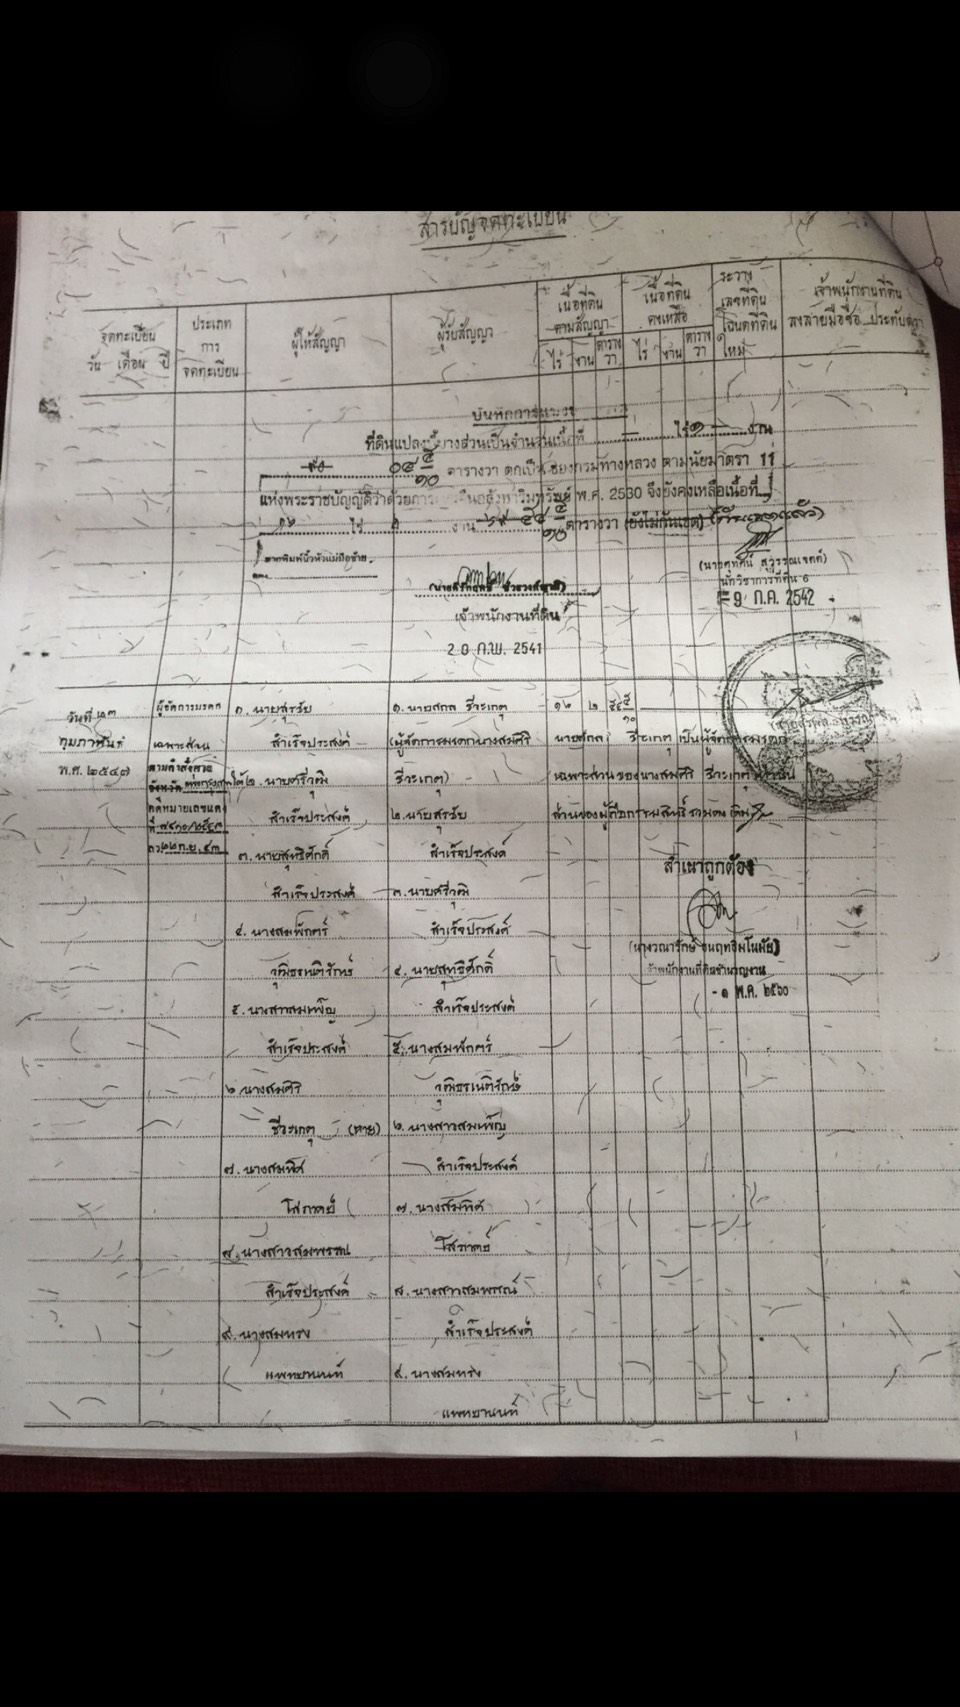 สารบัญจดทะเบียน
จดทะเบียน
วัน เดือน ปี
ประเภท
การ
จดทะเบียน
ผู้ให้สัญญา
ผู้รับสัญญา
เนื้อที่ดิน
ตามสัญญา
ไร่ งาน ตาราง
วา
เนื้อที่ดิน
คงเหลือ
ไร่ งาน ตาราง
วา
ระวาง
เลขที่ดิน
โฉนดที่ดิน
ใหม่
เจ้าพนักงานที่ดิน
ลงลายมือชื่อ ประทับตรา
บันทึกการ
ที่ดินแปลงนี้บางส่วนเป็นจำนวนเนื้อที่ ไร่ ๑ งาน
ตารางวา ตกเป็นของกรมทางหลวง ตามนัยมาตรา 11
แห่งพระราชบัญญัติว่าด้วยการ อสังหาริมทรัพย์ พ.ศ. 2530 จึงยังคงเหลือเนื้อที่
ไร่ งาน ตารางวา (ยังไม่กันเขต)
เจ้าพนักงานที่ดิน
20 ก.พ. 2541
(นายสุทัศน์ สุวรรณเจตต์)
นักวิชาการที่ดิน 6
9 ก.ค. 2542
วันที่ ๒๓
กุมภาพันธ์
พ.ศ. ๒๕๔๗
ผู้จัดการมรดก
เฉพาะส่วน
ตามคำสั่งศาล
จังหวัด
คดีหมายเลขแดง
๑. นายสุรชัย
สำเร็จประสงค์
๒. นายศรีวุฒิ
สำเร็จประสงค์
๓. นายสุทธิศักดิ์
สำเร็จประสงค์
๔. นางสมพักตร์
วุฒิธรเนติรักษ์
๕. นางสาวสมเพ็ญ
สำเร็จประสงค์
๖. นางสมศิริ
ชีวะเกตุ (ตาย)
๗. นางสมพิศ
โสภาคย์
๘. นางสาวสมพรรณ
สำเร็จประสงค์
๙. นางสมทรง
แพทยานนท์
๑. นายสกล ชีวะเกตุ
(ผู้จัดการมรดกนางสมศิริ
ชีวะเกตุ)
๒. นายสุรชัย
สำเร็จประสงค์
๓. นายศรีวุฒิ
สำเร็จประสงค์
๔. นายสุทธิศักดิ์
สำเร็จประสงค์
๕. นางสมพักตร์
วุฒิธรเนติรักษ์
๖. นางสาวสมเพ็ญ
สำเร็จประสงค์
๗. นางสมพิศ
โสภาคย์
๘. นางสาวสมพรรณ์
สำเร็จประสงค์
๙. นางสมทรง
แพทยานนท์
๑๒ ๒ ๕๔
นายสกล ชีวะเกตุ เป็นผู้จัดการมรดก
เฉพาะส่วนของนางสมศิริ ชีวะเกตุ เท่านั้น
ส่วนของผู้ถือกรรมสิทธิ์รวมคงเดิม
สำเนาถูกต้อง
เจ้าพนักงานที่ดินชำนาญงาน
- ๑ พ.ค. ๒๕๖๐